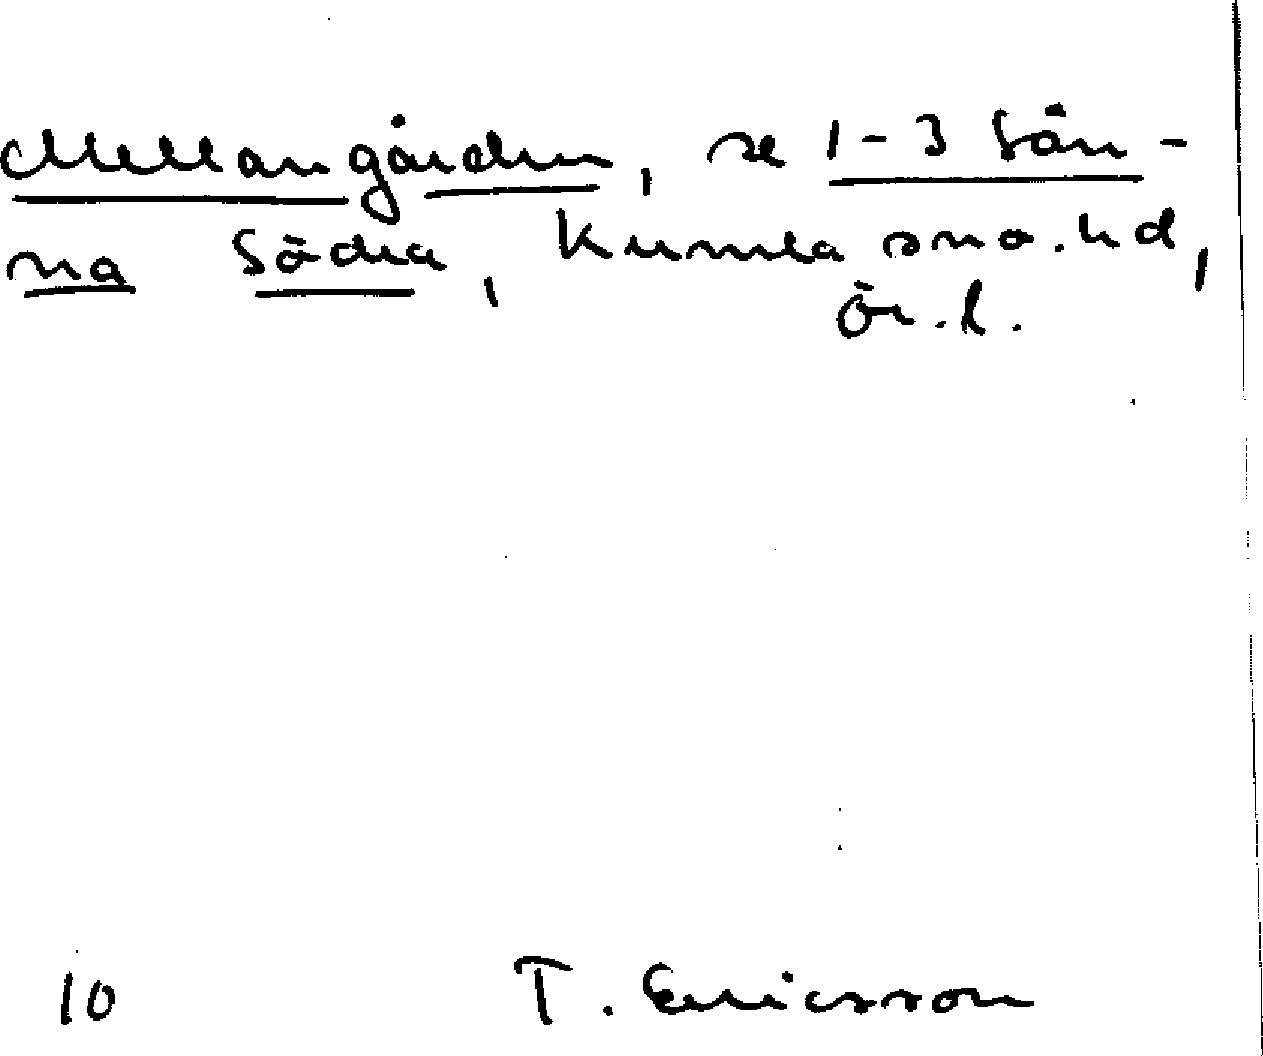 Mellangården, se 1-3 Sän-
na Södra, Kumla sno.hd,
Ör.l.
10 T. Ericsson